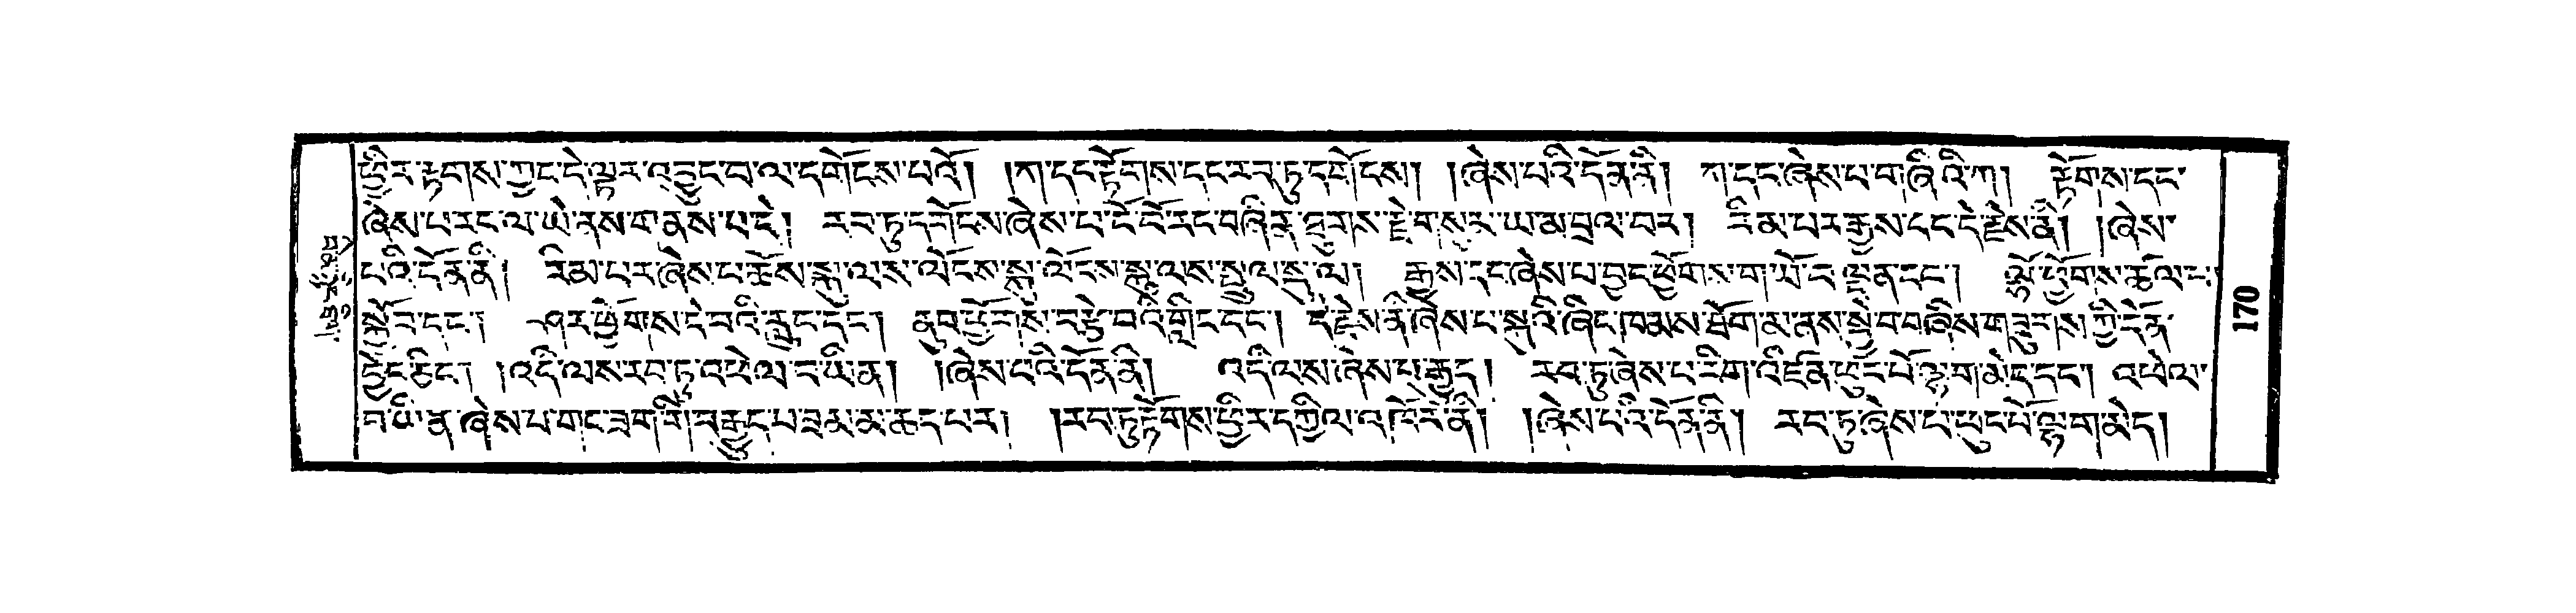 ཕྱིར་རྟགས་ཀྱང་དེ་ལྟར་འབྱུང་བ་ལ་དགོངས་པའོ། །ཀ་དང་རྟོགས་དང་རབ་ཏུ་དགོངས། །ཞེས་པའི་དོན་ནི། ཀ་དང་ཞེས་པ་གཞིའི་ཀ། རྟོགས་དང་
ཞེས་པ་རང་ལ་ཡེ་ནས་གནས་པ་དེ། རབ་ཏུ་དགོངས་ཞེས་པ་ངོ་བོ་རང་བཞིན་ཐུགས་རྗེ་གསུམ་ཡ་མ་བྲལ་བར། རིམ་པར་རྒྱས་དང་དེ་རྗེས་ནི། །ཞེས་
པའི་དོན་ནི། རིམ་པར་ཞེས་པ་ཆོས་སྐུ་ལས་ལོངས་སྐུ་ལོངས་སྐུ་ལས་སྤྲུལ་སྐུ་ལ། རྒྱས་དང་ཞེས་པ་བྱང་ཕྱོགས་ག་ཡོ་ད་ལྡན་དང་། ལྷོ་ཕྱོགས་ཚུལ་པ་
སྐྱོབ་དང་། ཤར་ཕྱོགས་དེ་བའི་རླུང་དང་། ནུབ་ཕྱོགས་དབྱེ་བའི་གླིང་དང་། དེ་རྗེས་ནི་ཞེས་པ་སྐུའི་ཞིང་ཁམས་ཐོག་མ་ནས་སྤྱི་བ་བཞིས་གཟུངས་ཀྱི་དོན་
བྱེད་ཅིང་། །འདི་ལས་རབ་ཏུ་འཕེལ་བ་ཡིན། །ཞེས་པའི་དོན་ནི། འདི་ལས་ཞེས་པ་རྒྱུད། རབ་ཏུ་ཞེས་པ་རིག་འཛིན་ཕུང་པོ་ལྷག་མེད་དང་། འཕེལ་
བ་ཡིན་ཞེས་པ་གང་ཟག་གི་བརྒྱུད་པ་ཟམ་མ་ཆད་པར། །རབ་ཏུ་རྟོགས་ཕྱིར་དཀྱིལ་འཁོར་ནི། །ཞེས་པའི་དོན་ནི། རབ་ཏུ་ཞེས་པ་ཕུང་པོ་ལྷག་མེད།
170